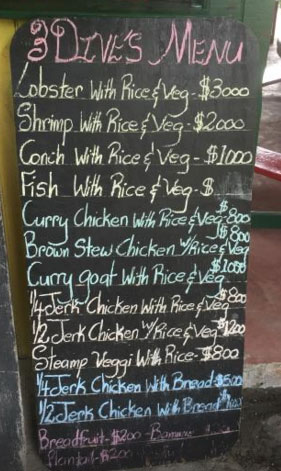 3 Dive's Menu
Lobster With Rice & Veg - $3000
Shrimp With Rice & Veg - $2000
Conch With Rice & Veg - $1000
Fish With Rice & Veg - $
Curry Chicken With Rice & Veg $800
Brown Stew Chicken w/Rice & Veg $800
Curry goat With Rice & Veg $1000
1/4 Jerk Chicken With Rice & Veg $800
1/2 Jerk Chicken w/Rice & Veg $1200
Steamp Veggi With Rice - $800
1/4 Jerk Chicken With Bread - $500
1/2 Jerk Chicken With Bread
Breadfruit - $200 -
Plantait - $200